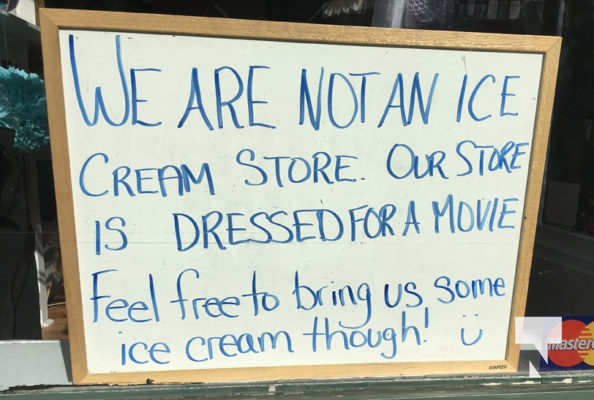 WE ARE NOT AN ICE
CREAM STORE. OUR STORE
IS DRESSED FOR A MOVIE
Feel free to bring us some
ice cream though!
STAPLES